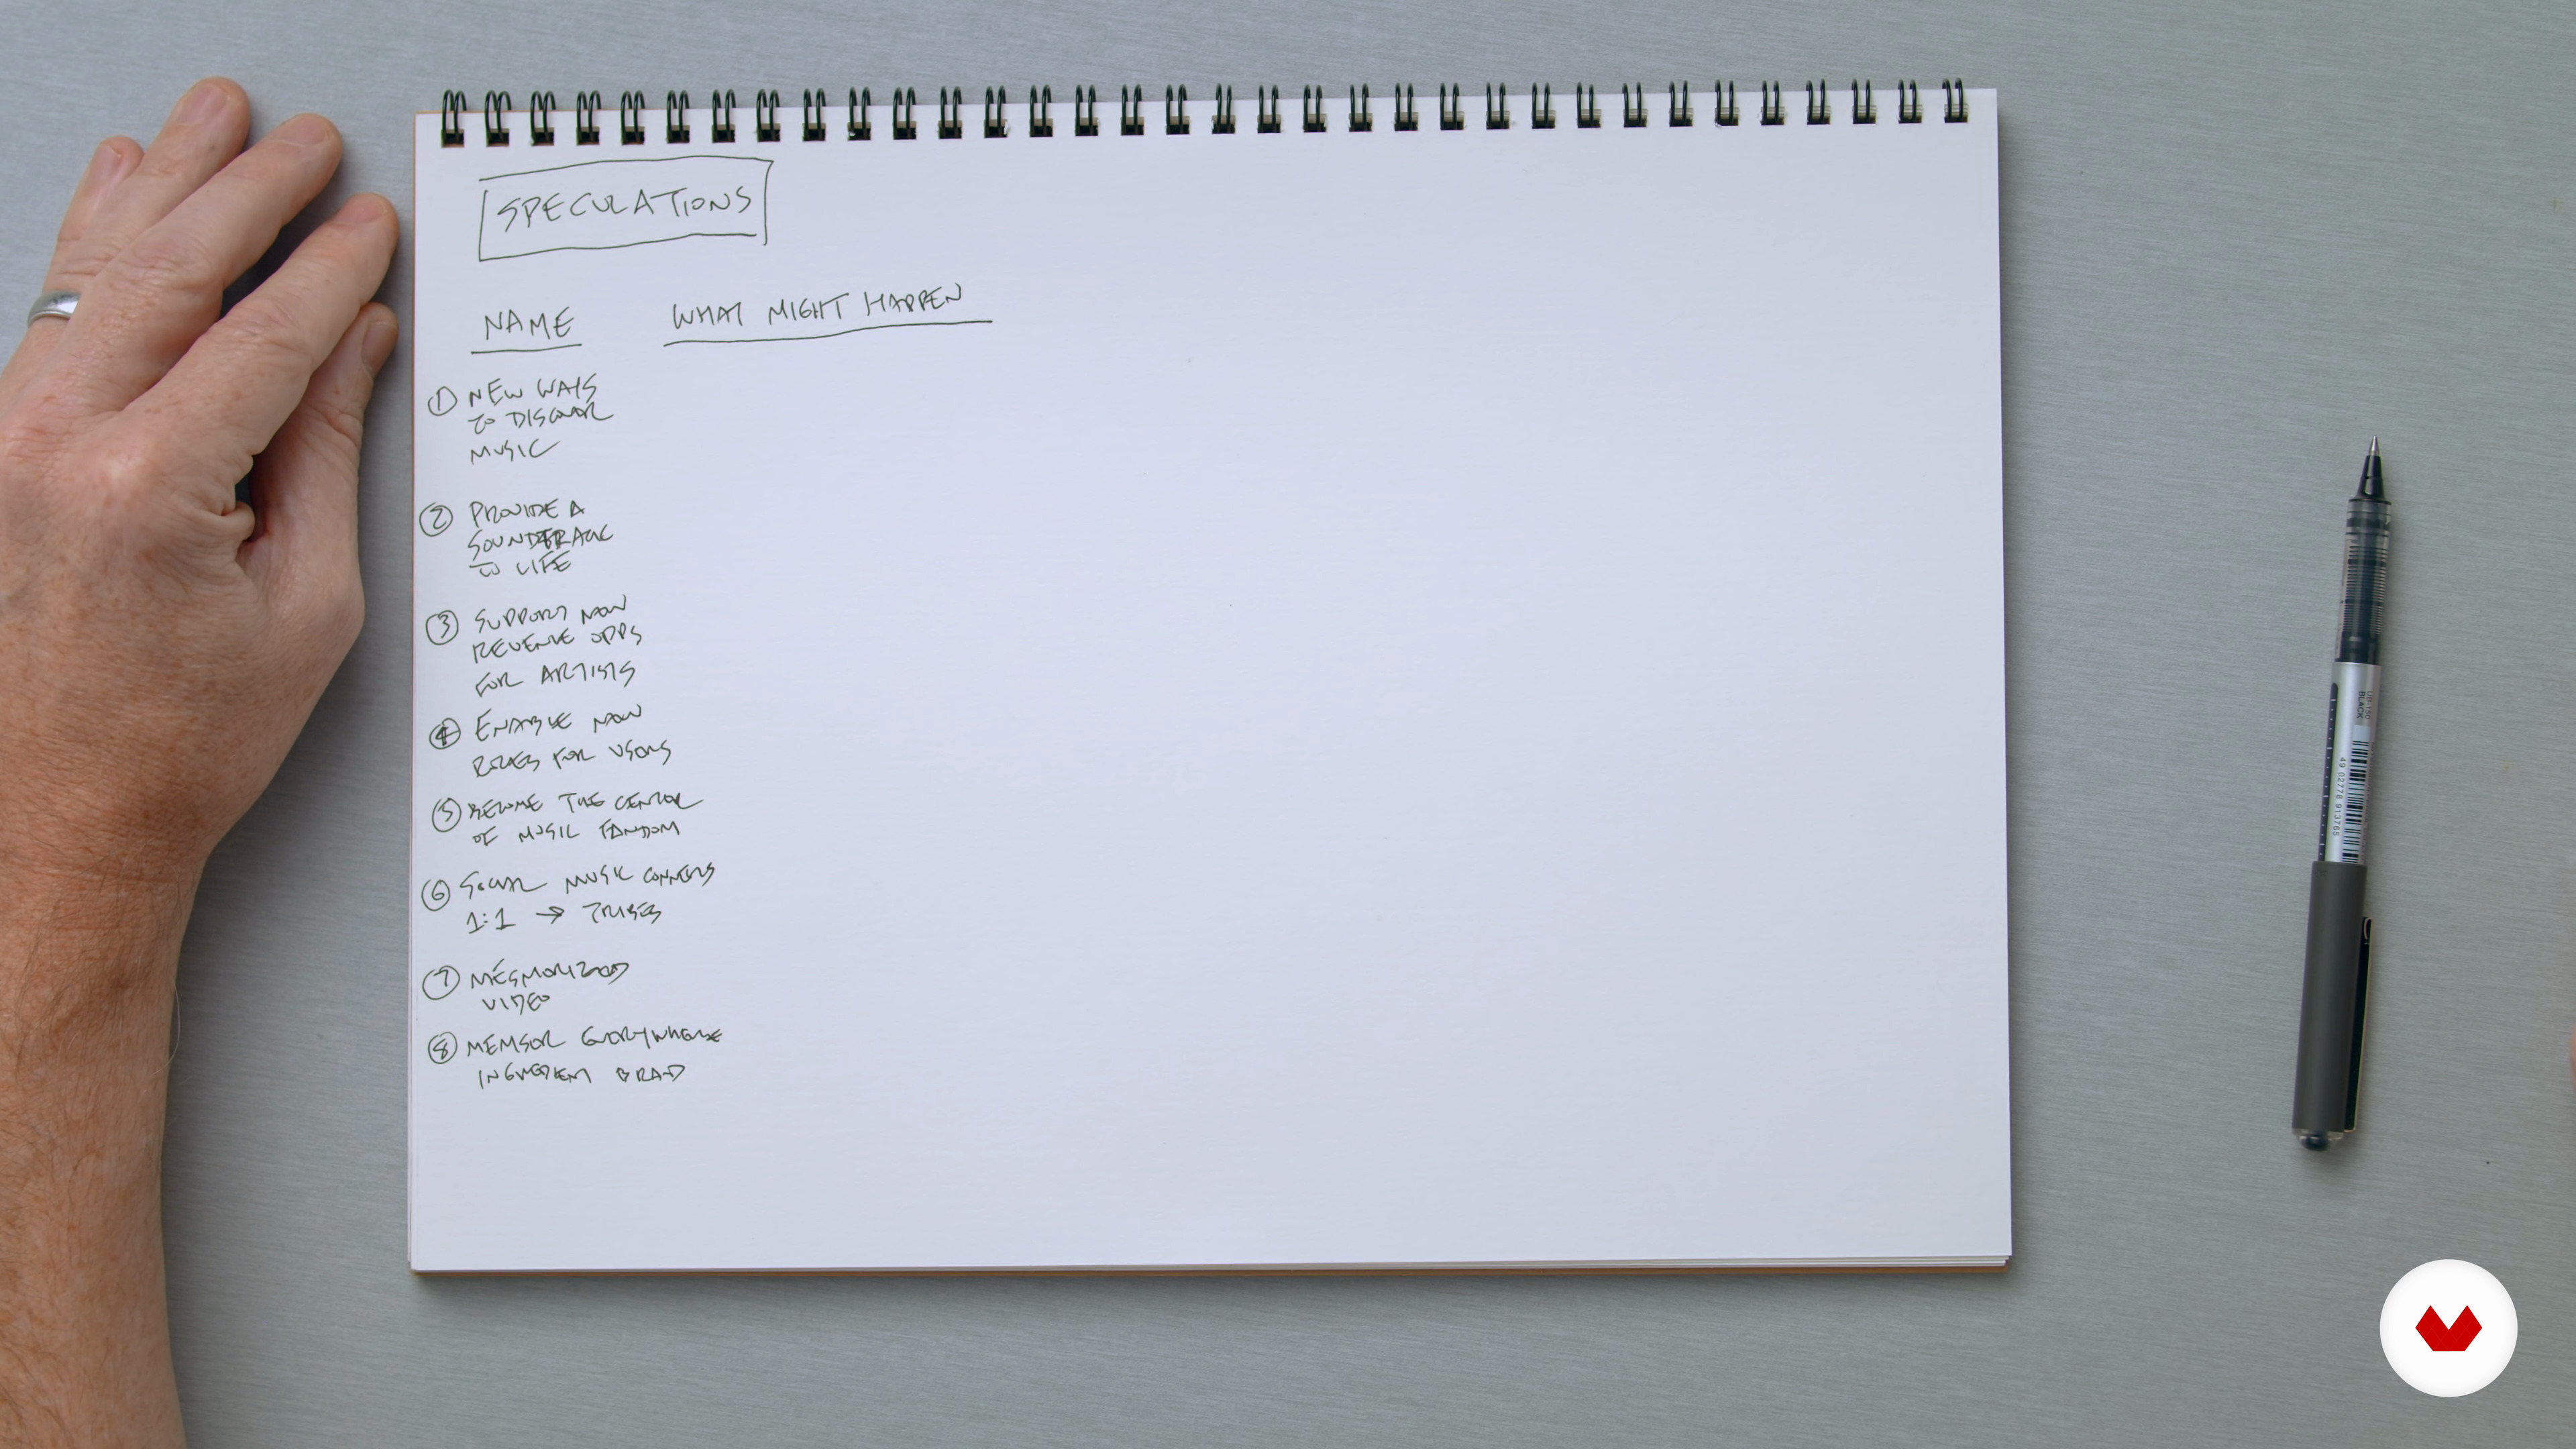 SPECULATIONS
NAME
WHAT MIGHT HAPPEN
① NEW WAYS
TO DISCOVER
MUSIC
② PROVIDE A
SOUNDTRACK
TO LIFE
③ SUPPORT NEW
REVENUE OPPS
FOR ARTISTS
④ ENABLE NEW
ROLES FOR USERS
⑤ BECOME THE CENTER
OF MUSIC FANDOM
⑥ SOCIAL MUSIC CONNECTS
1:1 → TRIBES
⑦ MESMERIZED
VIDEO
⑧ EVERYWHERE
INGREDIENT BRAND
BLACK